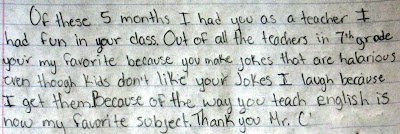 Of these 5 months I had you as a teacher I
had fun in your class. Out of all the teachers in 7th grade
your my favorite because you make jokes that are halarious
even though kids don't like your jokes I laugh because
I get them. Because of the way you teach english is
now my favorite subject. Thank you Mr. C!